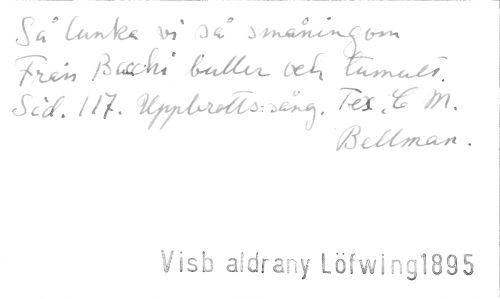 Så lunka vi så småningom
Från Bacchi buller och tumult.
Sid. 117. Uppbrotts-sång. Tex. C. M.
Bellman.
Visb aldrany Löfwing1895